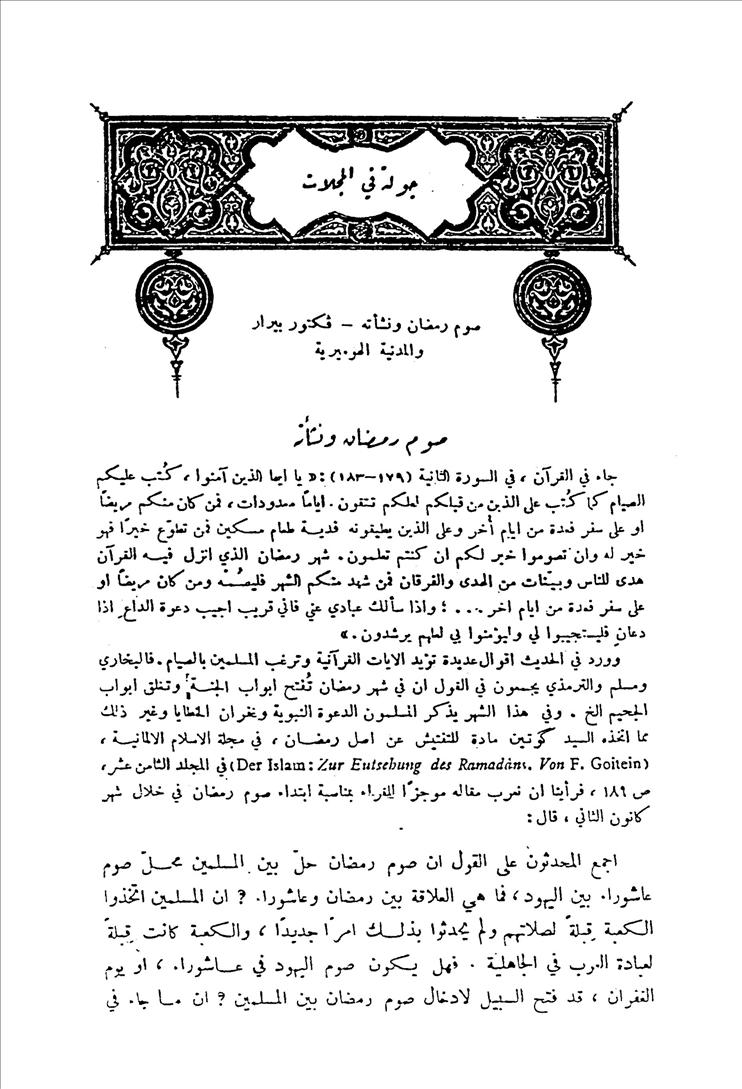 جولة في المجلات
صوم رمضان ونشأته – ڤكتور بيرار
والمدنية الهوميرية
صوم رمضان ونشأته
جاء في القرآن ، في السورة الثانية (١٧٩–١٨٣) : « يا ايها الذين آمنوا ، كُتب عليكم
الصيام كما كُتب على الذين من قبلكم لعلكم تتقون . اياماً معدودات ، فمن كان منكم مريضاً
او على سفر فعدة من ايام أُخر وعلى الذين يطيقونه فدية طعام مسكين فمن تطوّع خيرًا فهو
خير له وان تصوموا خير لكم ان كنتم تعلمون . شهر رمضان الذي انزل فيه القرآن
هدى للناس وبيّنات من الهدى والفرقان فمن شهد منكم الشهر فليصُمْه ومن كان مريضاً او
على سفر فعدة من ايام اخر ... ؛ واذا سألك عبادي عني فاني قريب اجيب دعوة الداعِ اذا
دعانِ فليستجيبوا لي وليؤمنوا بي لعلهم يرشدون . »
وورد في الحديث اقوال عديدة تؤيد الايات القرآنية وترغب المسلمين بالصيام . فالبخاري
ومسلم والترمذي يجمعون في القول ان في شهر رمضان تُفتح ابواب الجنة وتغلق ابواب
الجحيم الخ . وفي هذا الشهر يذكر المسلمون الدعوة النبوية وغفران الخطايا وغير ذلك
مما اتخذه السيد گوتين مادة للتفتيش عن اصل رمضان ، في مجلة الاسلام الالمانية ،
(Der Islam : Zur Eutsehung des Ramadâns. Von F. Goitein) في المجلد الثامن عشر ،
ص ١٨٩ ، فرأينا ان نعرب مقاله موجزًا للقراء بمناسبة ابتداء صوم رمضان في خلال شهر
كانون الثاني ، قال :
اجمع المحدثون على القول ان صوم رمضان حلّ بين المسلمين محلّ صوم
عاشوراء بين اليهود ، فما هي العلاقة بين رمضان وعاشوراء ? ان المسلمين اتخذوا
الكعبة قِبلةً لصلاتهم ولم يحدثوا بذلك امرًا جديدًا ، والكعبة كانت قِبلةً
لعبادة العرب في الجاهلية . فهل يكون صوم اليهود في عاشوراء ، او يوم
الغفران ، قد فتح السبيل لادخال صوم رمضان بين المسلمين ? ان ما جاء في